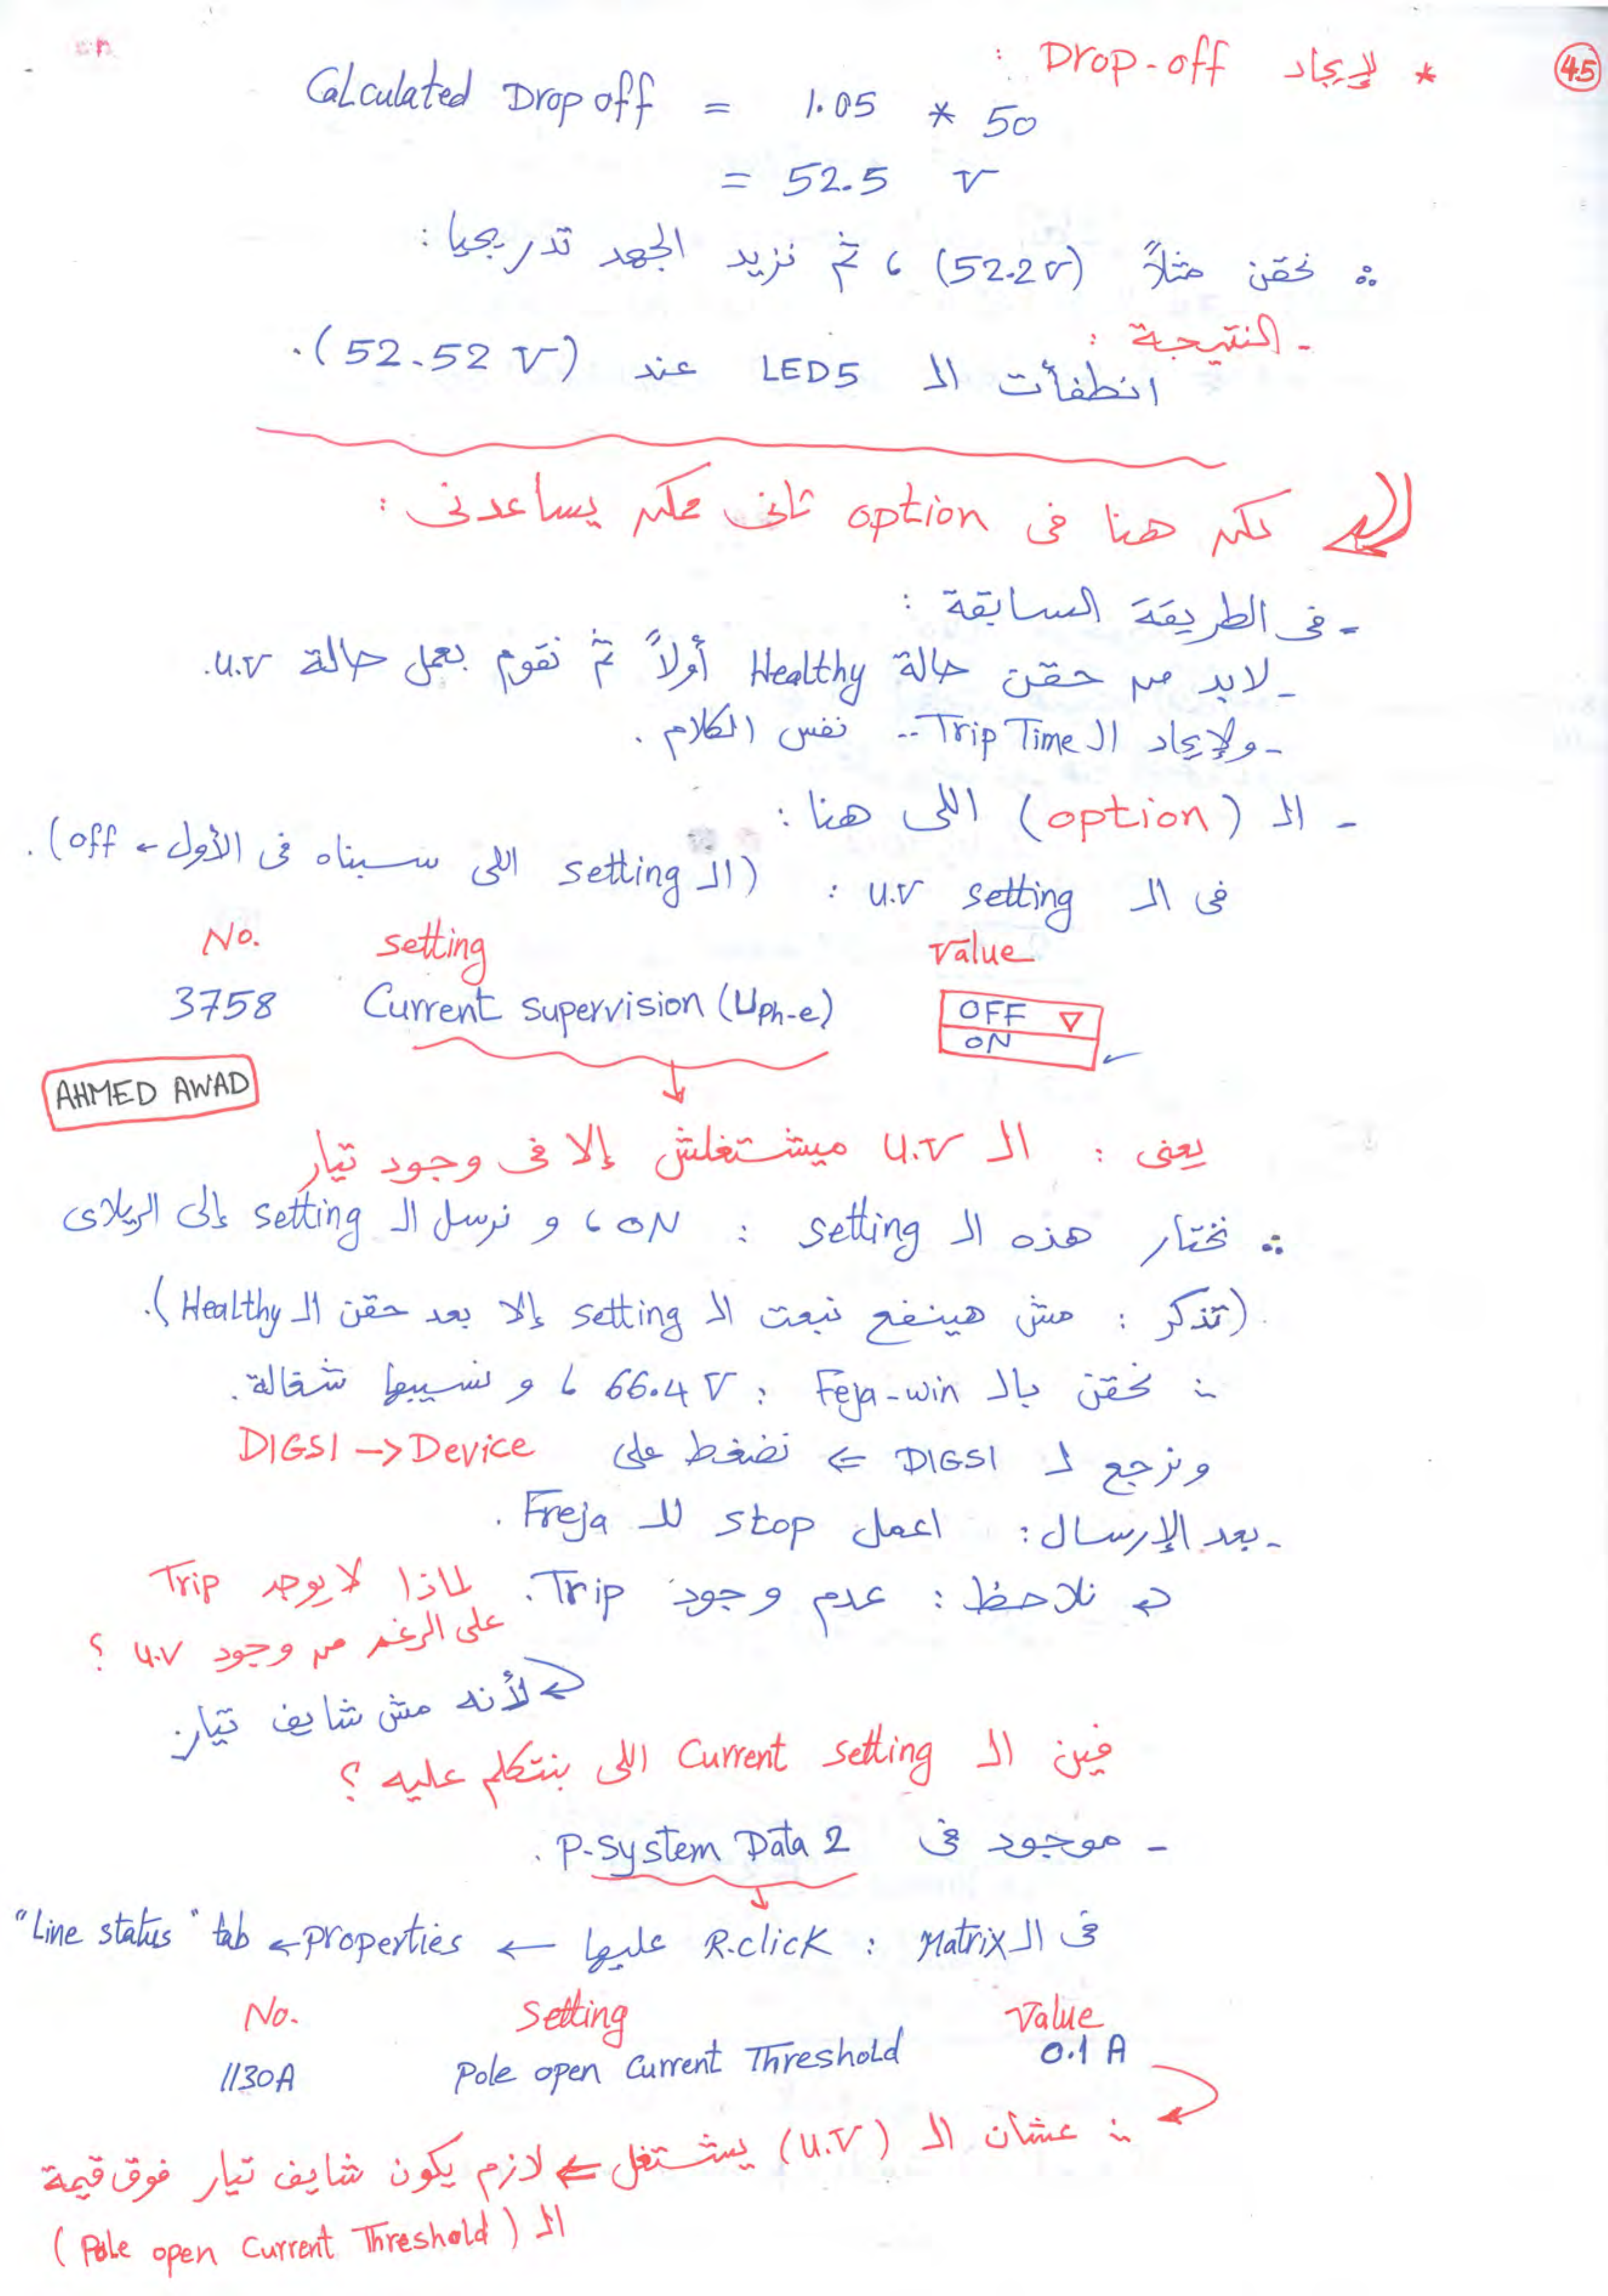 45
* لإيجاد Drop-off :
Calculated Drop off = 1.05 * 50
= 52.5 V
∴ نحقن مثلاً (52.2 V) ، ثم نزيد الجهد تدريجيا :
- النتيجة :
انطفأت الـ LED5 عند (52.52 V).
لكن هنا فى option تانى ممكن يساعدنى :
- فى الطريقة السابقة :
- لابد من حقن حالة Healthy أولاً ثم نقوم بعمل حالة U.V.
- ولإيجاد الـ Trip Time .. نفس الكلام .
- الـ (option) اللى هنا :
فى الـ U.V setting : (الـ setting اللى سبناه فى الأول ← off).
No. setting Value
3758 Current supervision (Uph-e) OFF ▽
ON ✓
AHMED AWAD
يعنى : الـ U.V ميشتغلش إلا فى وجود تيار
∴ نختار هذه الـ setting : ON ، و نرسل الـ setting إلى الريلاى
(تذكر : مش هينفع نبعت الـ setting إلا بعد حقن الـ Healthy).
∴ نحقن بالـ Feja-win : 66.4 V ، و نسيبها شغالة.
ونرجع لـ DIGSI ⇐ نضغط على DIGSI → Device
- بعد الإرسال : اعمل stop للـ Freja .
نلاحظ : عدم وجود Trip. لماذا لا يوجد Trip
على الرغم من وجود U.V ؟
لأنه مش شايف تيار.
فين الـ Current setting اللى بنتكلم عليه ؟
- موجود فى P-System Data 2 .
فى الـ Matrix : R.click عليها ← properties ← "Line status" tab
No. Setting Value
1130A Pole open Current Threshold 0.1 A
∴ عشان الـ (U.V) يشتغل ⇐ لازم يكون شايف تيار فوق قيمة
الـ (Pole open Current Threshold)